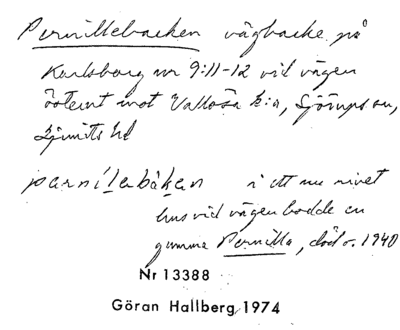 Pernillebacken vägbacke på
Karlsborg nr 9:11-12 vid vägen
österut mot Vallösa k:a, Sjörups sn,
Ljunits hd
parnílabàkan i ett nu rivet
hus vid vägen bodde en
gumma Pernilla, död o. 1940
Nr 13388
Göran Hallberg 1974